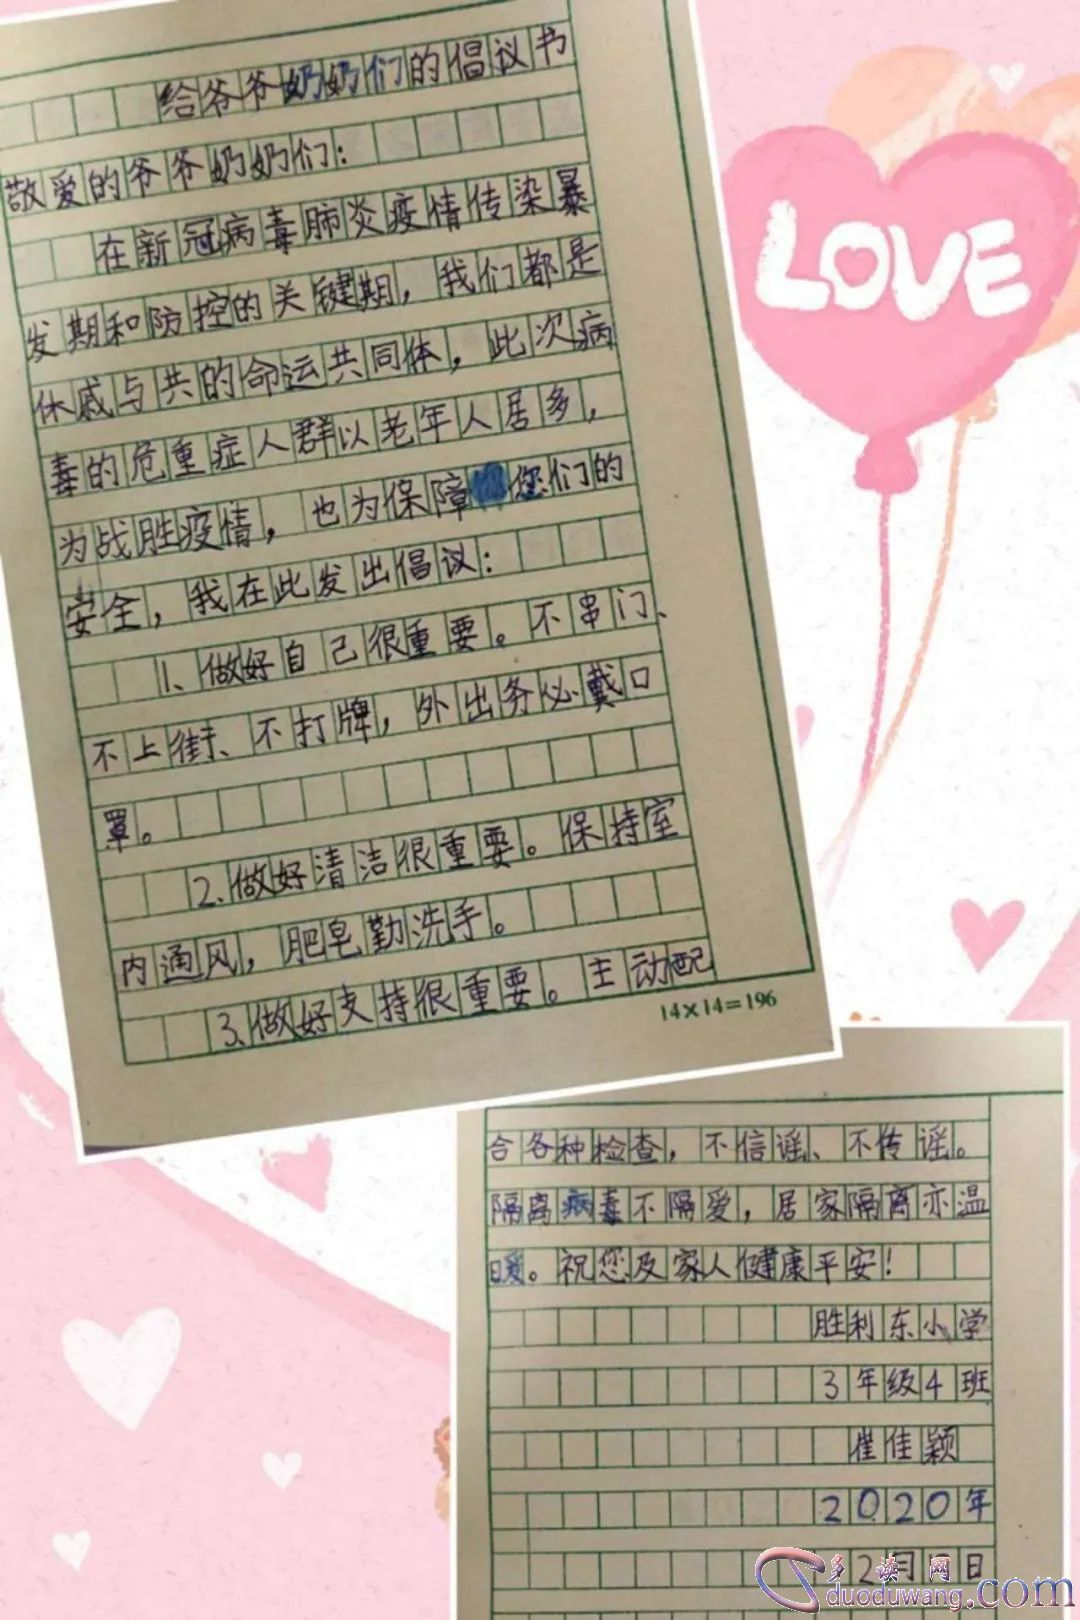 给爷爷奶奶们的倡议书
敬爱的爷爷奶奶们：
在新冠病毒肺炎疫情传染暴
发期和防控的关键期，我们都是
休戚与共的命运共同体，此次病
毒的危重症人群以老年人居多，
为战胜疫情，也为保障您们的
安全，我在此发出倡议：
1、做好自己很重要。不串门、
不上街、不打牌，外出务必戴口
罩。
2.做好清洁很重要。保持室
内通风，肥皂勤洗手。
3.做好支持很重要。主动配
14×14=196
LOVE
合各种检查，不信谣、不传谣。
隔离病毒不隔爱，居家隔离亦温
暖。祝您及家人健康平安！
胜利东小学
3年级4班
崔佳颖
2020年
2月 日
多读网
duoduwang.com